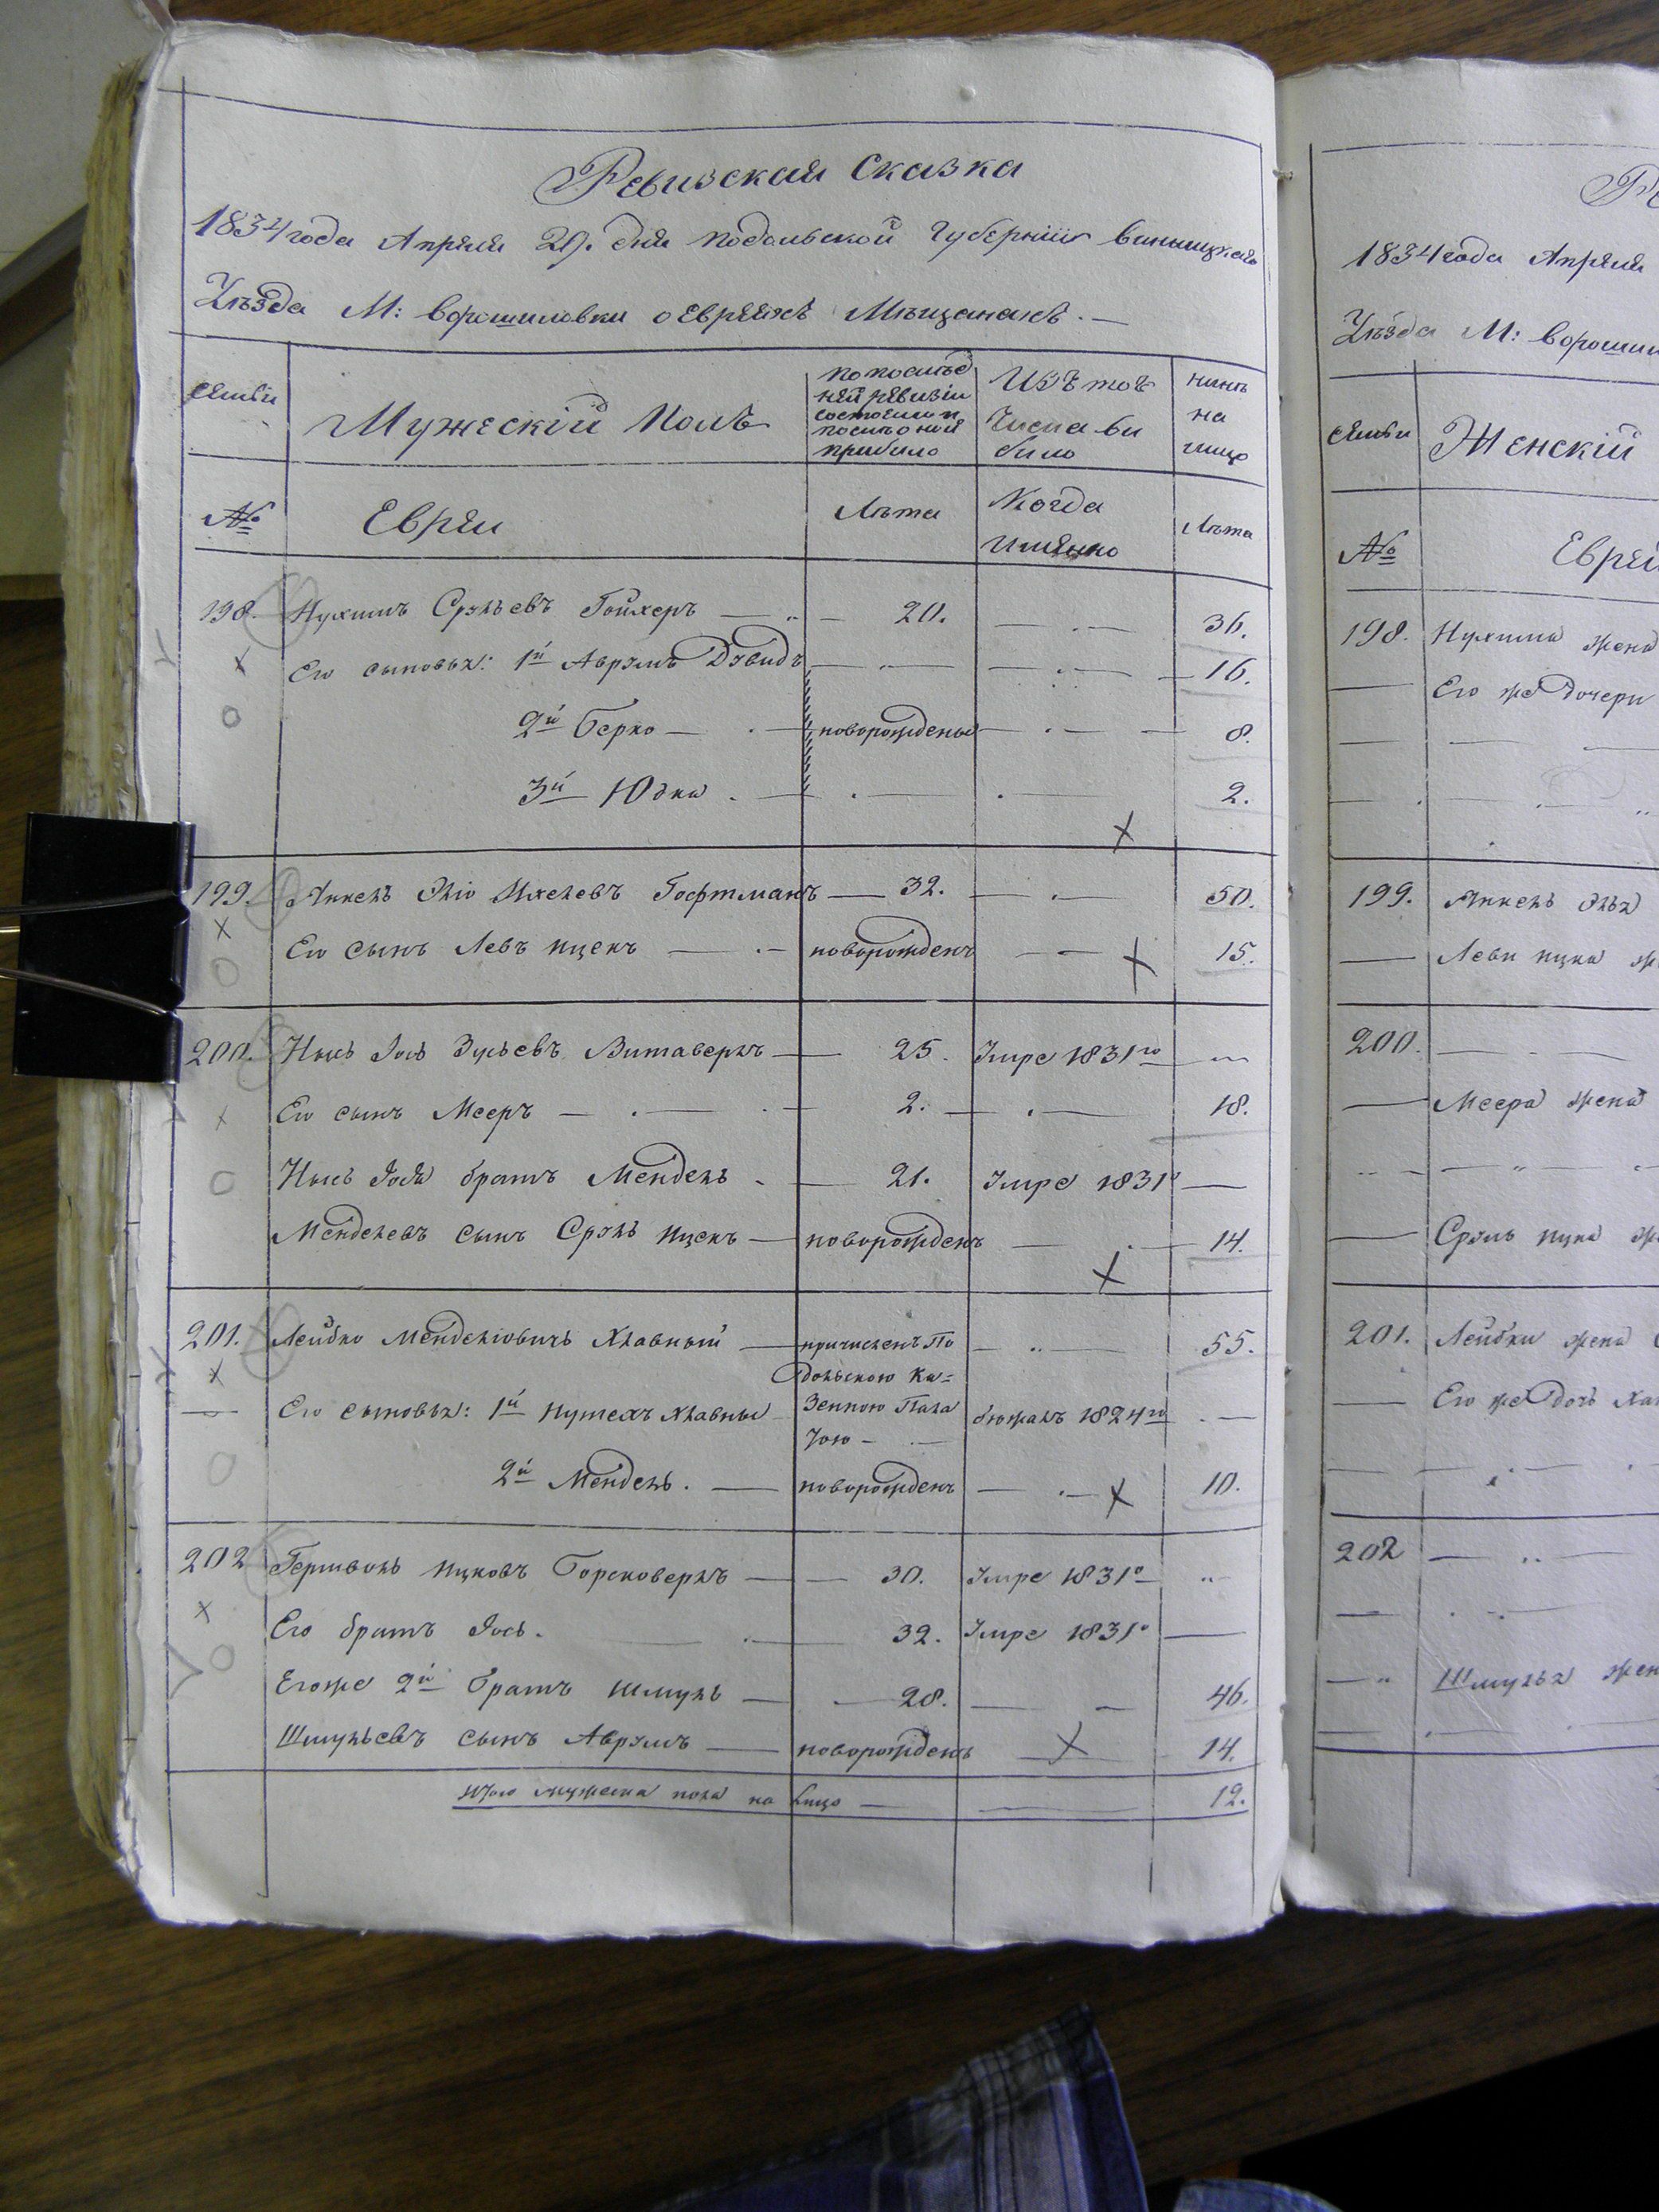 Ревизская Сказка
1834 года Апреля 29. дня подольской Губернии виницкаго
Уѣзда М: ворошиловки о Евреяхъ Мѣщанахъ. —
семьи
Мужескій Полъ
по послѣд
ней ревизіи
состояло и
послѣ оной
прибыло
Изъ того
Числа вы
было
нынѣ
на
лицо
№
Евреи
Лѣта
Когда
имянно
Лѣта
198. Нухимъ Срульевъ Гойхеръ — 20. — 36.
Его сыновья: 1й Аврумъ Дувидъ — — 16.
2й Берко — новорожденые — 8.
3й Юдка — — 2.
199. Янкель Эліо Ихелевъ Гофтманъ — 32. — 50.
Его сынъ Левъ Ицекъ — новорожденъ — 15.
200. Нысь Іось Зусьевъ — 25. Умре 1831го —
Его сынъ Мееръ — 2. — 18.
Нысь Іося братъ Мендель — 21. Умре 1831о —
Менделевъ сынъ Сруль Ицекъ — новорожденъ — 14.
201. Лейбко Менделіовичъ Хлавный — причисленъ По — 55.
дольскою Ка=
Его сыновья: 1й Хлавный зенною Пала бежалъ 1824го —
тою —
2й Мендель. — новорожденъ — 10.
202 Гершвонь Ицковъ — 30. Умре 1831о
Его братъ Іось. — 32. Умре 1831о —
Егоже 2й братъ Шмуль — 28. — 46.
Шмульевъ сынъ Аврумъ — новорожденъ — 14.
Итого мужеска пола на лицо — — 12.
1834 года Апреля
Уѣзда М: ворошил
семьи
Женскій
№
Еврей
198. Нухима жена
— Его же дочери
199. Янкель Элья
— Леви Ицка ж
200. —
— Меера жена
— Сруль Ицка ж
201. Лейбки жена
— Его же дочь Ха
202 —
— Шмулья жен